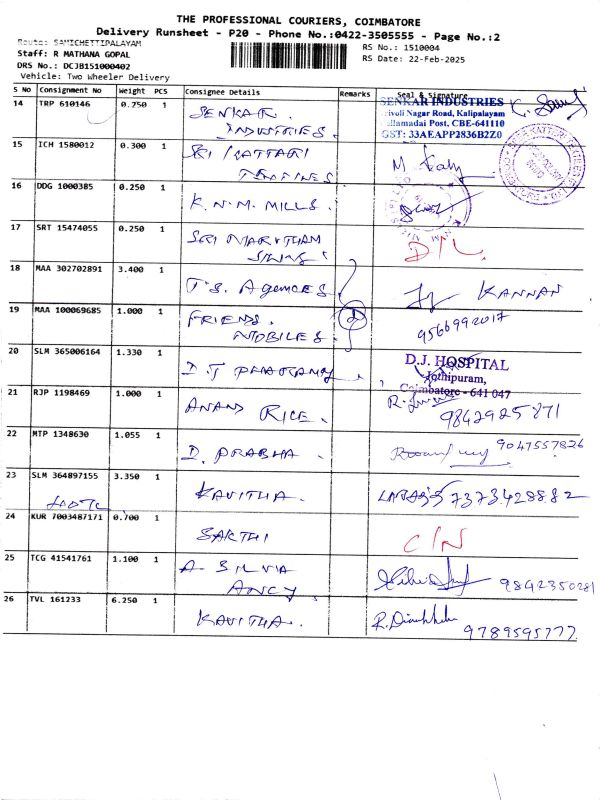 THE PROFESSIONAL COURIERS, COIMBATORE
Delivery Runsheet - P20 - Phone No.:0422-3505555 - Page No.:2
Route: SAMICHETTIPALAYAM
RS No.: 1510004
Staff: R MATHANA GOPAL
RS Date: 22-Feb-2025
DRS No.: DCJB151000402
Vehicle: Two Wheeler Delivery
S No Consignment No Weight PCS Consignee Details Remarks Seal & Signature
14 TRP 610146 0.250 1 SENKAR INDUSTRIES.
SENKAR INDUSTRIES
Nagar Road, Kalipalayam
Post, CBE-641110
GST: 33AEAPP2836B2Z0
15 ICH 1580012 0.300 1 SRI
16 DDG 1000385 0.250 1 K.N.M. MILLS.
17 SRT 15474055 0.250 1 SRI
D/L
18 MAA 302702891 3.400 1 T.S. Agences KANNAN
19 MAA 100069685 1.000 1 FRIENDS. MOBILES. 2 9566992017
20 SLM 365006164 1.330 1 D.J
D.J. HOSPITAL
Jothipuram,
Coimbatore - 641 047
21 RJP 1198469 1.000 1 ANAND RICE. 9842925871
22 MTP 1348630 1.055 1 D. PRABHA. 9047557826
23 SLM 364897155 3.350 1 KAVITHA. 7373428882
24 KUR 7003487171 0.700 1 SAKTHI C/N
25 TCG 41541761 1.100 1 A. SILVIA ANCY. 9842350281
26 TVL 161233 6.250 1 KAVITHA. 9789595777